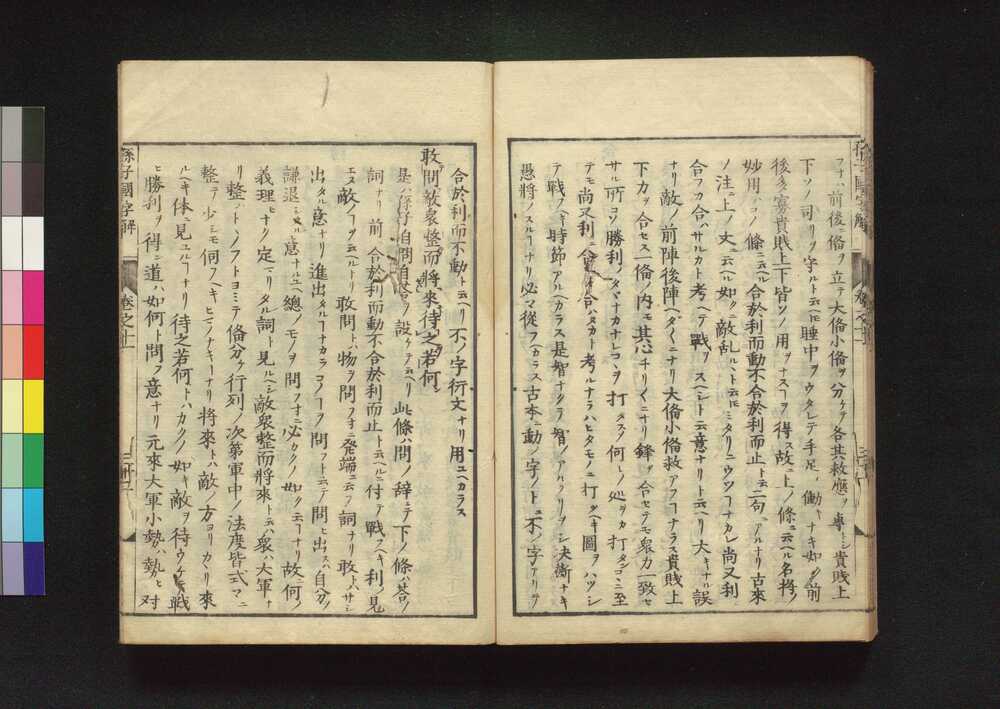 フハ前後ニ俻ヲ立テ大俻小俻ヲ分ケテ各其救應ヲ專トシ貴賎上
下ソノ司リヲ守ルト云𪜈睡中ヲウタレテ手足ノ働キナキ如ク前
後多寡貴賎上下皆ソノ用ヲナスヿヲ得ス故ニ上ノ條ニ云ヘル名将ノ
妙用ハコノ條ニ云ヘル合於利而動不合於利而止ト云二句ニアルナリ古來
ノ注ニ上ノ文ニ云ヘル如クニ敵乱ルヽト云𪜈ミタリニウツヿナカレ尚又利
合フカ合ハサルカト考ヘテ戰フヘシト云意ナリト云ヘリ大キナル誤
ナリ敵ノ前陣後陣ハダ〱ニナリ大俻小俻救アフヿナラス貴賎上
下カヲ合セス一俻ノ内モ其心チリ〱ニナリ鋒ヲ合セテモ衆力一致セ
サル所コソ勝利ノタマナカナレコヽヲ打タスノ何レノ処ヲカ打タンコヽニ至
テモ尚又利ニ合ヘキカ合ハヌカト考ルナラハヒタモノニ打ツヘキ圖ヲハツシ
テ戰フヘキ時節アルヘカラス是智ナクテ智ノアルフリヲシ決断ナキ
愚将ノスルヿナリ必マ從フヘカラス古本ニ動ノ字ノ下ニ不ノ字アリテ
合於利而不動ト云ヘリ不ノ字衍文ナリ用ユヘカラス
敢問敵衆整而將來待之若何
是ハ孫子自問自答ヲ設ケテ云ヘリ此條ハ問ノ辞ニテ下ノ條ハ荅ノ
詞ナリ前ニ合於利而動不合於利而止ト云ヘルニ付テ戰フヘキ利ノ見
エヌ敵ノヿヲ云ヘルトリ敢問トハ物ヲ問フオニ発端ニ云フ詞ナリ敢トハサシ
出タル意ナリ進出タルヿナカラコノヿヲ問フト云テ問ヒ出スハ自分ヲ
謙退シタル意ナルユヘ總ノモノヲ問フオニ必カクノ如ク云フナリ故ニ何ノ
義理ヒナリ定マリタル詞ト見ルヘシ敵衆整而將來ト云衆ハ大軍ナ
リ整ハトヽノフトヨミテ俻分ケ行列ノ次第軍中ノ法度皆式マニ
整テ少シモ伺フヘキヒマノナキヿナリ将來トハ敵ノ方ヨリカヽリ來
ルヘキ体ニ見ユルヿナリ待之若何トハカクノ如キ敵ヲ待ウケテ戰
ヒ勝利ヲ得ル道ハ如何ト問フ意ナリ元來大軍小勢ハ勢ヒ對
孫子國字解
卷之十一